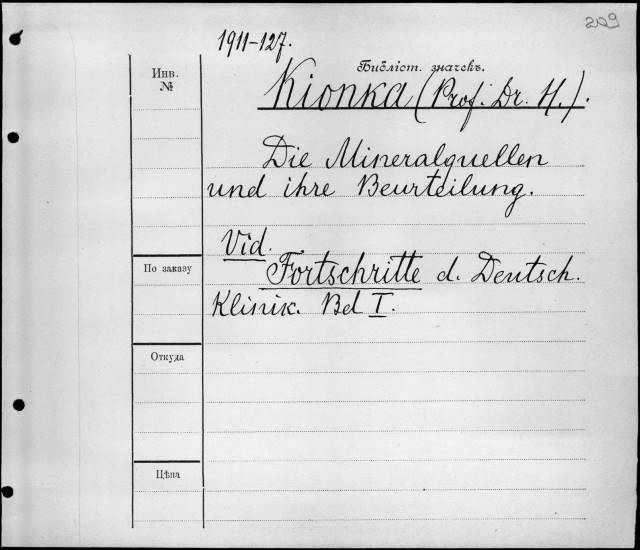 209
1911-127.
Библіот. значекъ.
Инв.
№
Kionka (Prof. Dr. H.).
Die Mineralquellen
und ihre Beurteilung.
Vid.
По заказу
Fortschritte d. Deutsch.
Klinik. Bd I.
Откуда
Цѣна